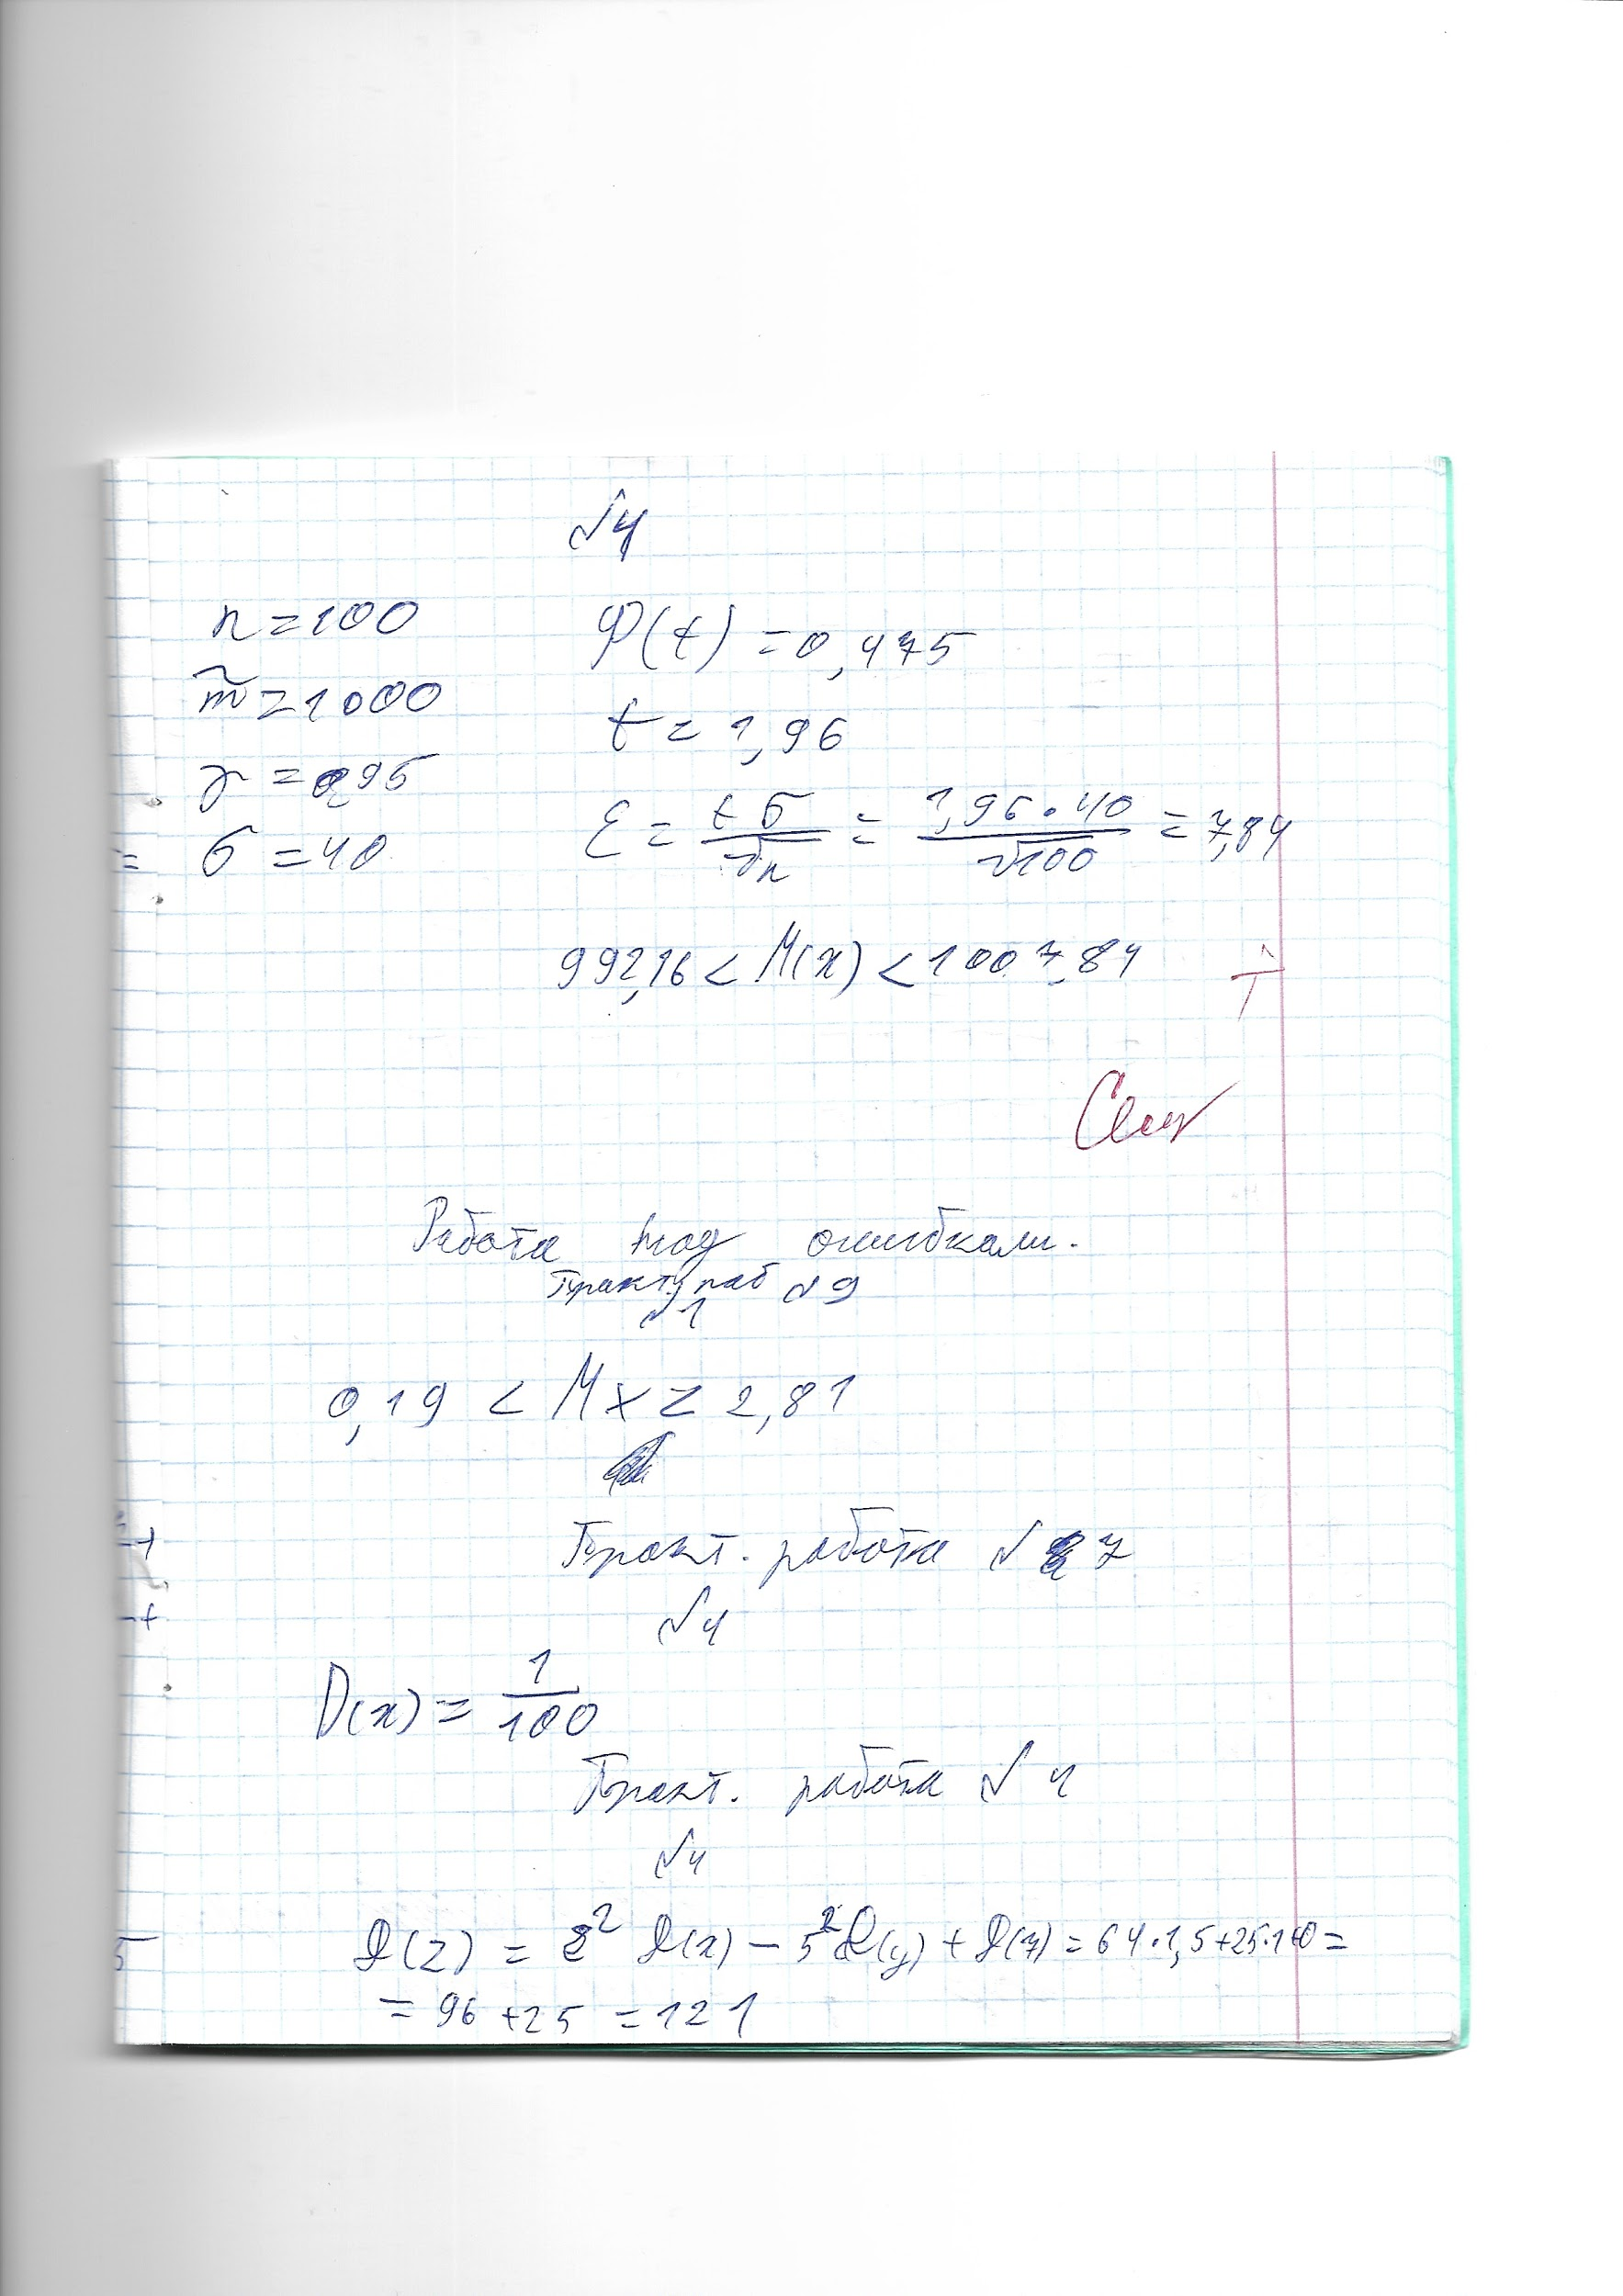 №4
n=100
m̃=1000
γ=0,95
σ=40
Φ(t)=0,475
t=1,96
ε = tσ/√n = 1,96·40/√100 = 7,84
992,16 < M(x) < 1007,84
+
Работа над ошибками.
Практ, раб №9
№1
0,19 < Mx < 2,81
Практ. работа № 7
№4
D(x) = 1/100
Практ. работа № 4
№4
D(z) = 8² D(x) - 5² D(y) + D(7) = 64·1,5+25·1+0=
= 96+25 = 121